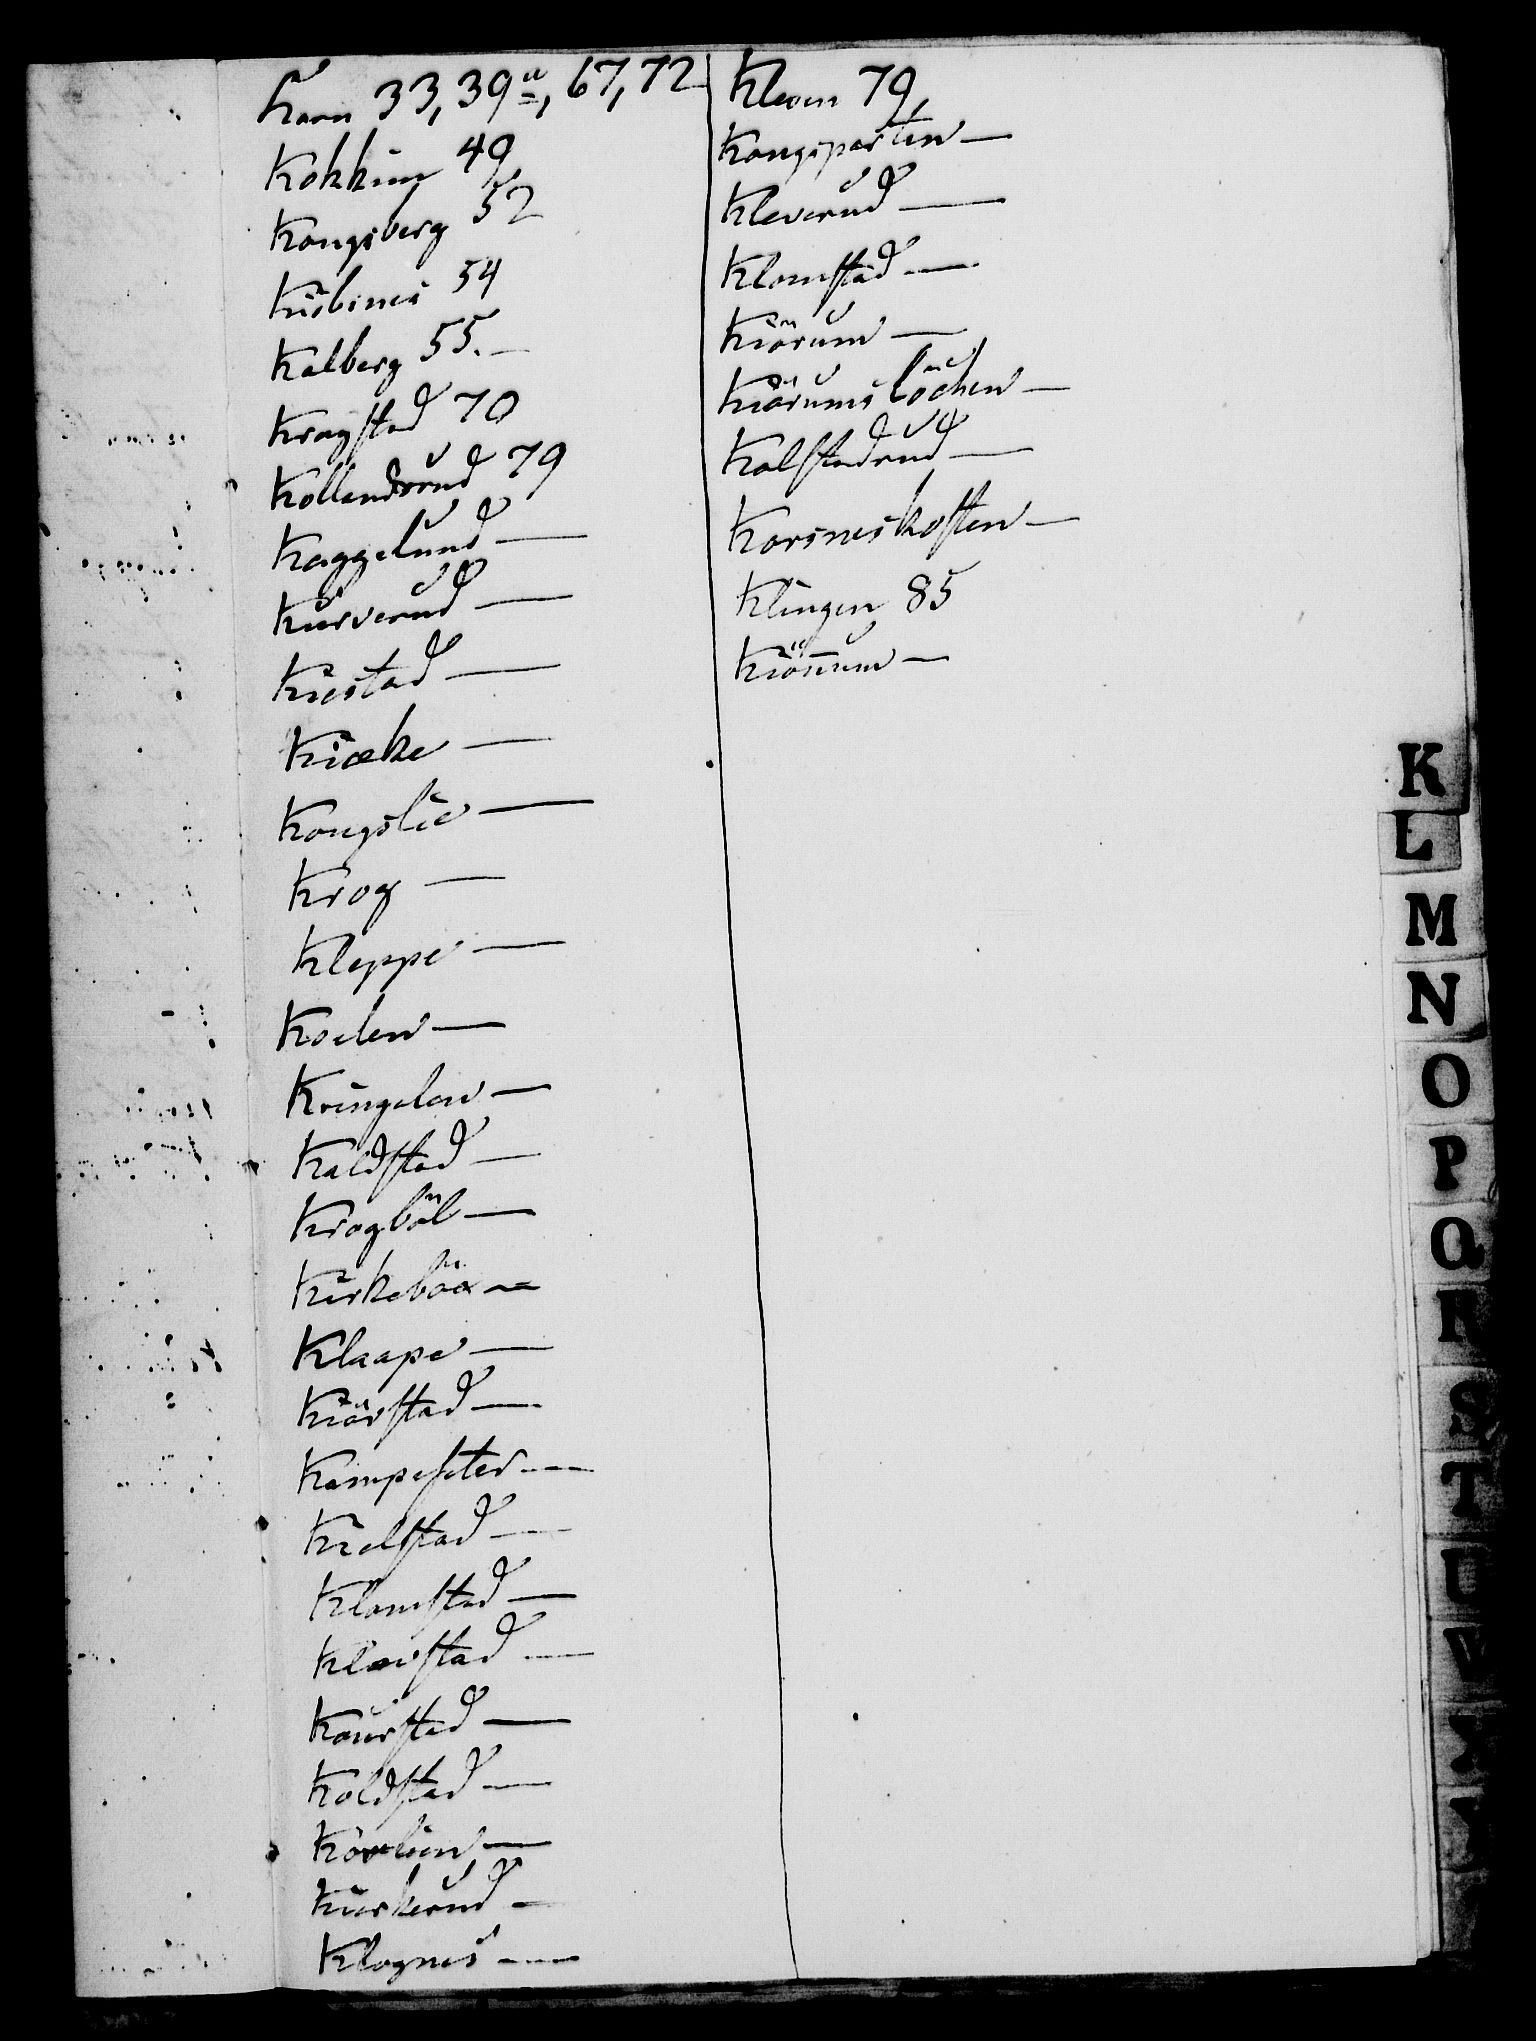 Korn 33, 39a, 67, 72
Kokkim 49
Kongsberg 52
Kiöbnes 54
Kalberg 55.-
Kragstad 70
Kollandsrud 79
Kaggelund -
Kurverud -
Kiestad -
Kiæke -
Kongslie -
Krog -
Kleppe -
Koelen -
Kringelen -
Kaldstad -
Krogböl -
Kirkeböe -
Klaape -
Kiörstad -
Kampesæter -
Kielstad -
Klomstad -
Klavstad -
Kaurstad -
Koldstad -
Kovlien -
Kurkerud -
Klognes -
Kleven 79,
Kongsparten -
Kleverud -
Klomstad -
Kiörum -
Kiörumslöcken -
Kolstadrud -
Korsneskosten -
Klingen 85
Kiönnum -
K
L
M
N
O
P
Q
R
S
T
U
W